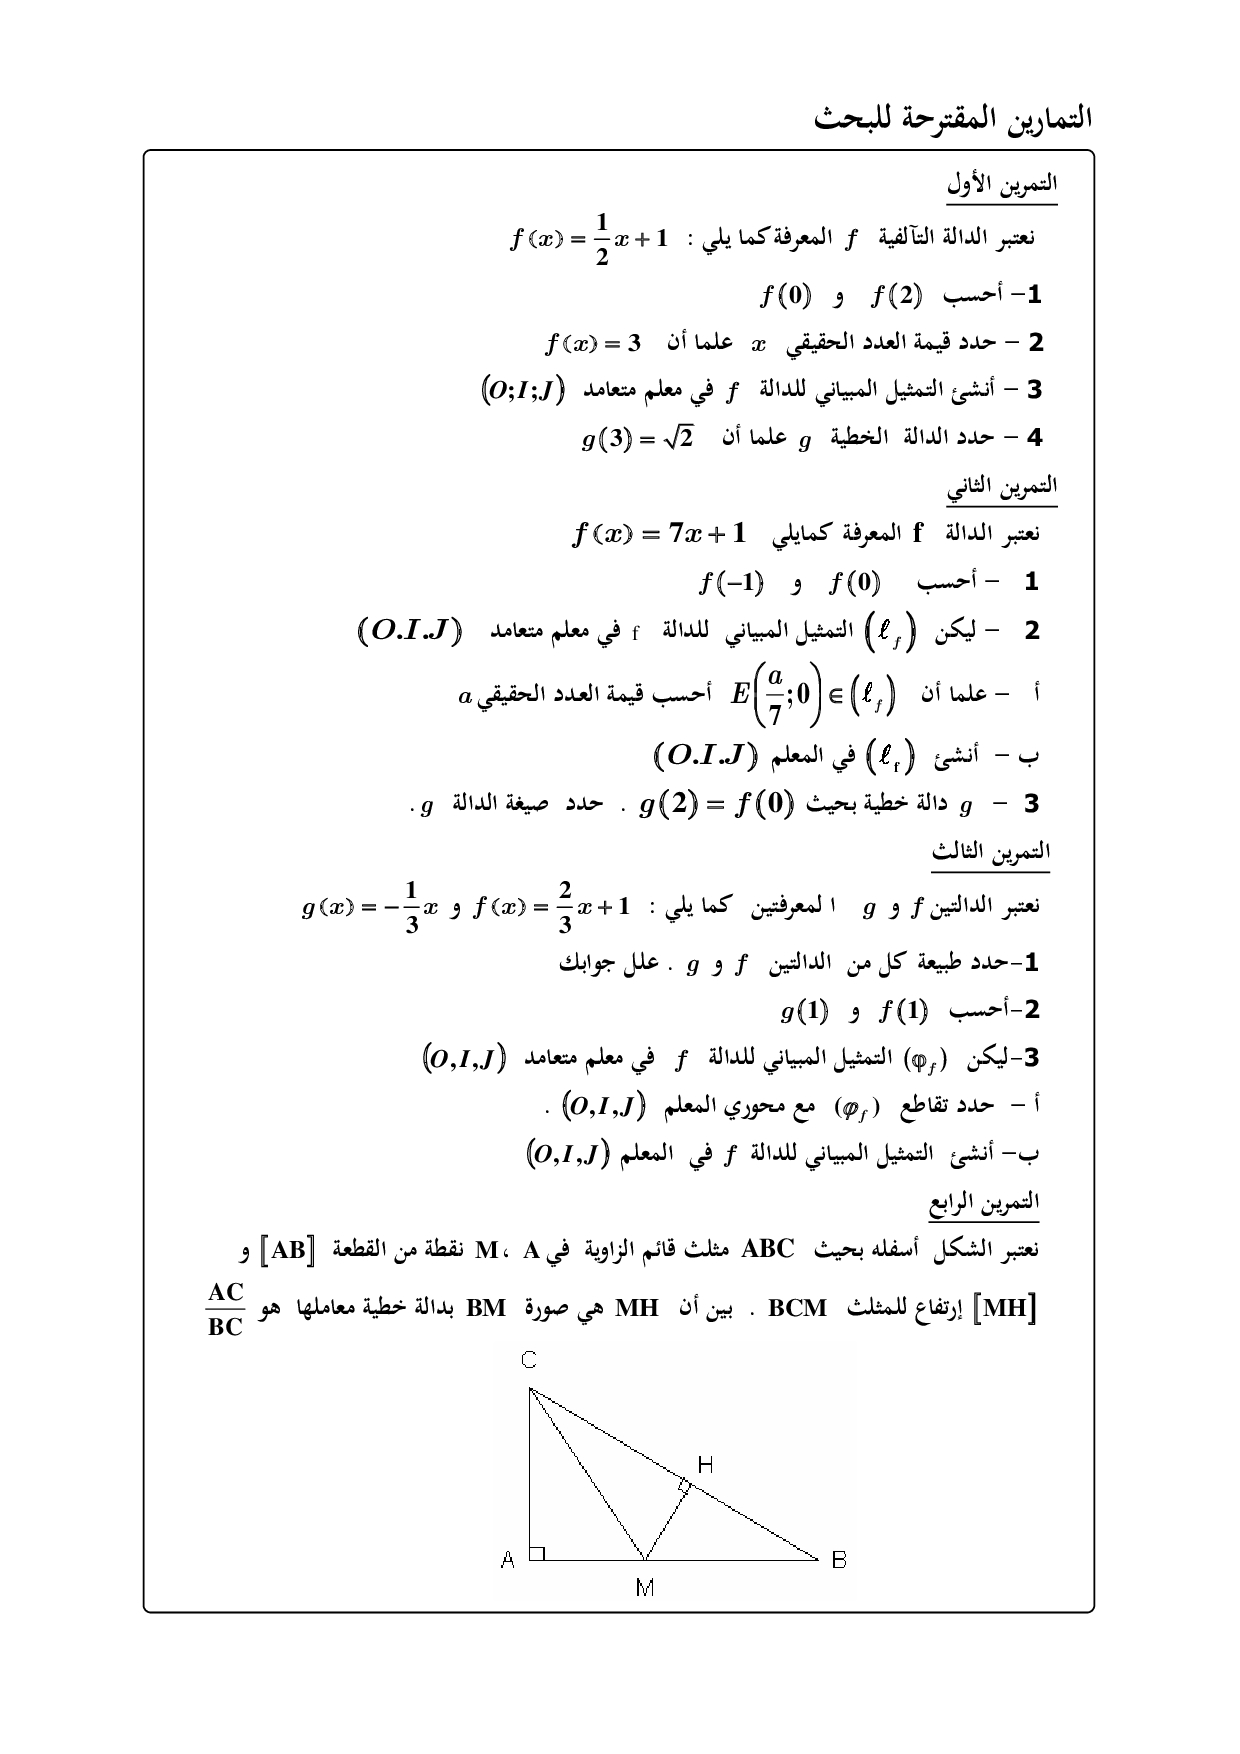 التمارين المقترحة للبحث
التمرين الأول
نعتبر الدالة التآلفية f المعرفة كما يلي : f(x) = 1/2 x + 1
1– أحسب f(2) و f(0)
2 – حدد قيمة العدد الحقيقي x علما أن f(x) = 3
3 – أنشئ التمثيل المبياني للدالة f في معلم متعامد (O;I;J)
4 – حدد الدالة الخطية g علما أن g(3) = √2
التمرين الثاني
نعتبر الدالة f المعرفة كمايلي f(x) = 7x + 1
1 – أحسب f(0) و f(–1)
2 – ليكن (ℓf) التمثيل المبياني للدالة f في معلم متعامد (O.I.J)
أ – علما أن E(a/7;0) ∈ (ℓf) أحسب قيمة العدد الحقيقي a
ب – أنشئ (ℓf) في المعلم (O.I.J)
3 – g دالة خطية بحيث g(2) = f(0) . حدد صيغة الدالة g .
التمرين الثالث
نعتبر الدالتين f و g ا لمعرفتين كما يلي : f(x) = 2/3 x + 1 و g(x) = –1/3 x
1–حدد طبيعة كل من الدالتين f و g . علل جوابك
2–أحسب f(1) و g(1)
3–ليكن (φf) التمثيل المبياني للدالة f في معلم متعامد (O,I,J)
أ – حدد تقاطع (φf) مع محوري المعلم (O,I,J) .
ب– أنشئ التمثيل المبياني للدالة f في المعلم (O,I,J)
التمرين الرابع
نعتبر الشكل أسفله بحيث ABC مثلث قائم الزاوية في A ،M نقطة من القطعة [AB] و
[MH] إرتفاع للمثلث BCM . بين أن MH هي صورة BM بدالة خطية معاملها هو AC/BC
C
H
A
B
M